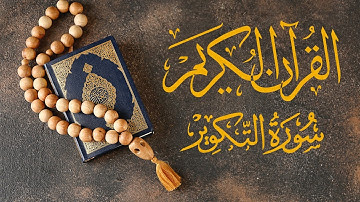 القرآن الكريم
سورة التكوير